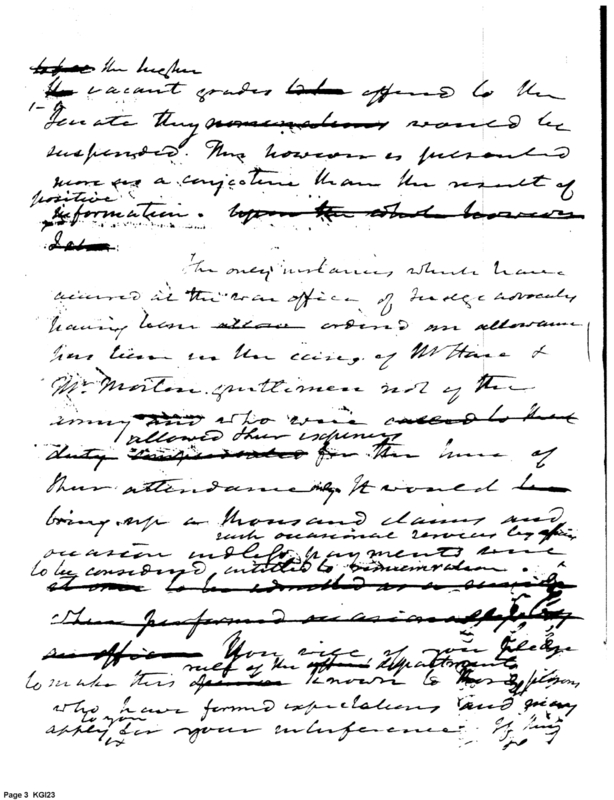 the higher
vacant grades offered to the
Senate they nominations would be
suspended. This however is presented
more as a conjecture than the result of
positive
information. Upon the whole however
The only instances which have
occurred at the war office of Judge advocates
having been allow ordered an allowance
has been in the cases of Mr Hare &
Mr. Morton gentlemen not of the
army and who were called to that
allowed their expences
duty for the time of
their attendance only. It would be
bring up a thousand claims and
such occasional services by
occasion endless payments were
to be considered entitled to remuneration.
at once to be admitted as a
when performed occasionally by
an officer You will if you please
rule of the department
to make this known to those persons
who have formed expectations and may
to you
apply for your interference. If
Page 3 KGI23